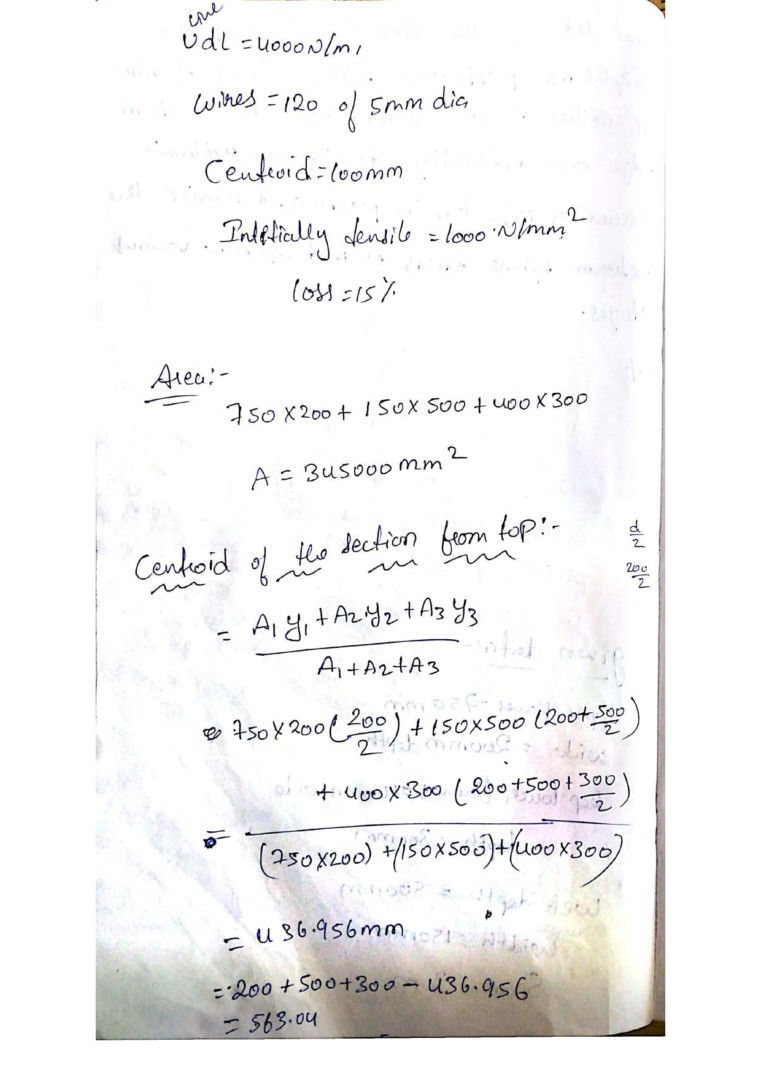 cove
Udl = 4000N/m,
wires = 120 of 5mm dia
Centroid = 100mm.
Initially tensile = 1000 N/mm²
loss = 15%
Area:-
750 X 200 + 150 X 500 + 400 X 300
A = 345000 mm²
Centroid of the section from top:-
d/2
200/2
= A₁y₁ + A₂y₂ + A₃y₃ / A₁ + A₂ + A₃
750 X 200 (200/2) + 150 X 500 (200 + 500/2)
+ 400 X 300 (200 + 500 + 300/2)
= (750 X 200) + (150 X 500) + (400 X 300)
= 436.956mm
= 200 + 500 + 300 - 436.956
= 563.04